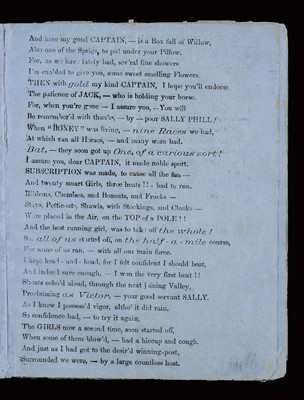 And here my good CAPTAIN, — is a Box full of Willow,
Also one of the Sprigs, to put under your Pillow.
For, as we have lately had, sev'ral fine showers
I'm enabled to give you, some sweet smelling Flowers.
THEN with gold my kind CAPTAIN, I hope you'll endorse
The patience of JACK, — who is holding your horse.
For, when you're gone — I assure you, — You will
Be remember'd with thanks, — by — poor SALLY PHILL!
When "HONEY" was living, — nine Races we had,
At which ran all Horses, — and many were bad.
But, — they soon got up One, of a curious sort!
I assure you, dear CAPTAIN, it made noble sport.
SUBSCRIPTION was made, to cause all the fun —
And twenty smart Girls, three heats!! - had to run.
Ribbons, Chemises, and Bonnets, and Frocks —
Stays, Petticoats, Shawls, with Stockings, and Cloaks —
Were placed in the Air, on the TOP of a POLE!!
And the best running girl, was to take off the whole!
So, all of us started off, on the half-a-mile course,
For some of us ran, — with all our main force.
I kept head - and - head, for I felt confident I should beat,
And indeed sure enough, — I won the very first heat!!
Shouts echo'd aloud, through the next joining Valley,
Proclaiming as Victor, — your good servant SALLY.
As I knew I possess'd vigor, altho' it did rain,
So confidence had, — to try it again.
The GIRLS now a second time, soon started off,
When some of them blow'd, — had a hiccup and cough.
And just as I had got to the desir'd winning-post,
Surrounded we were, — by a large countless host.